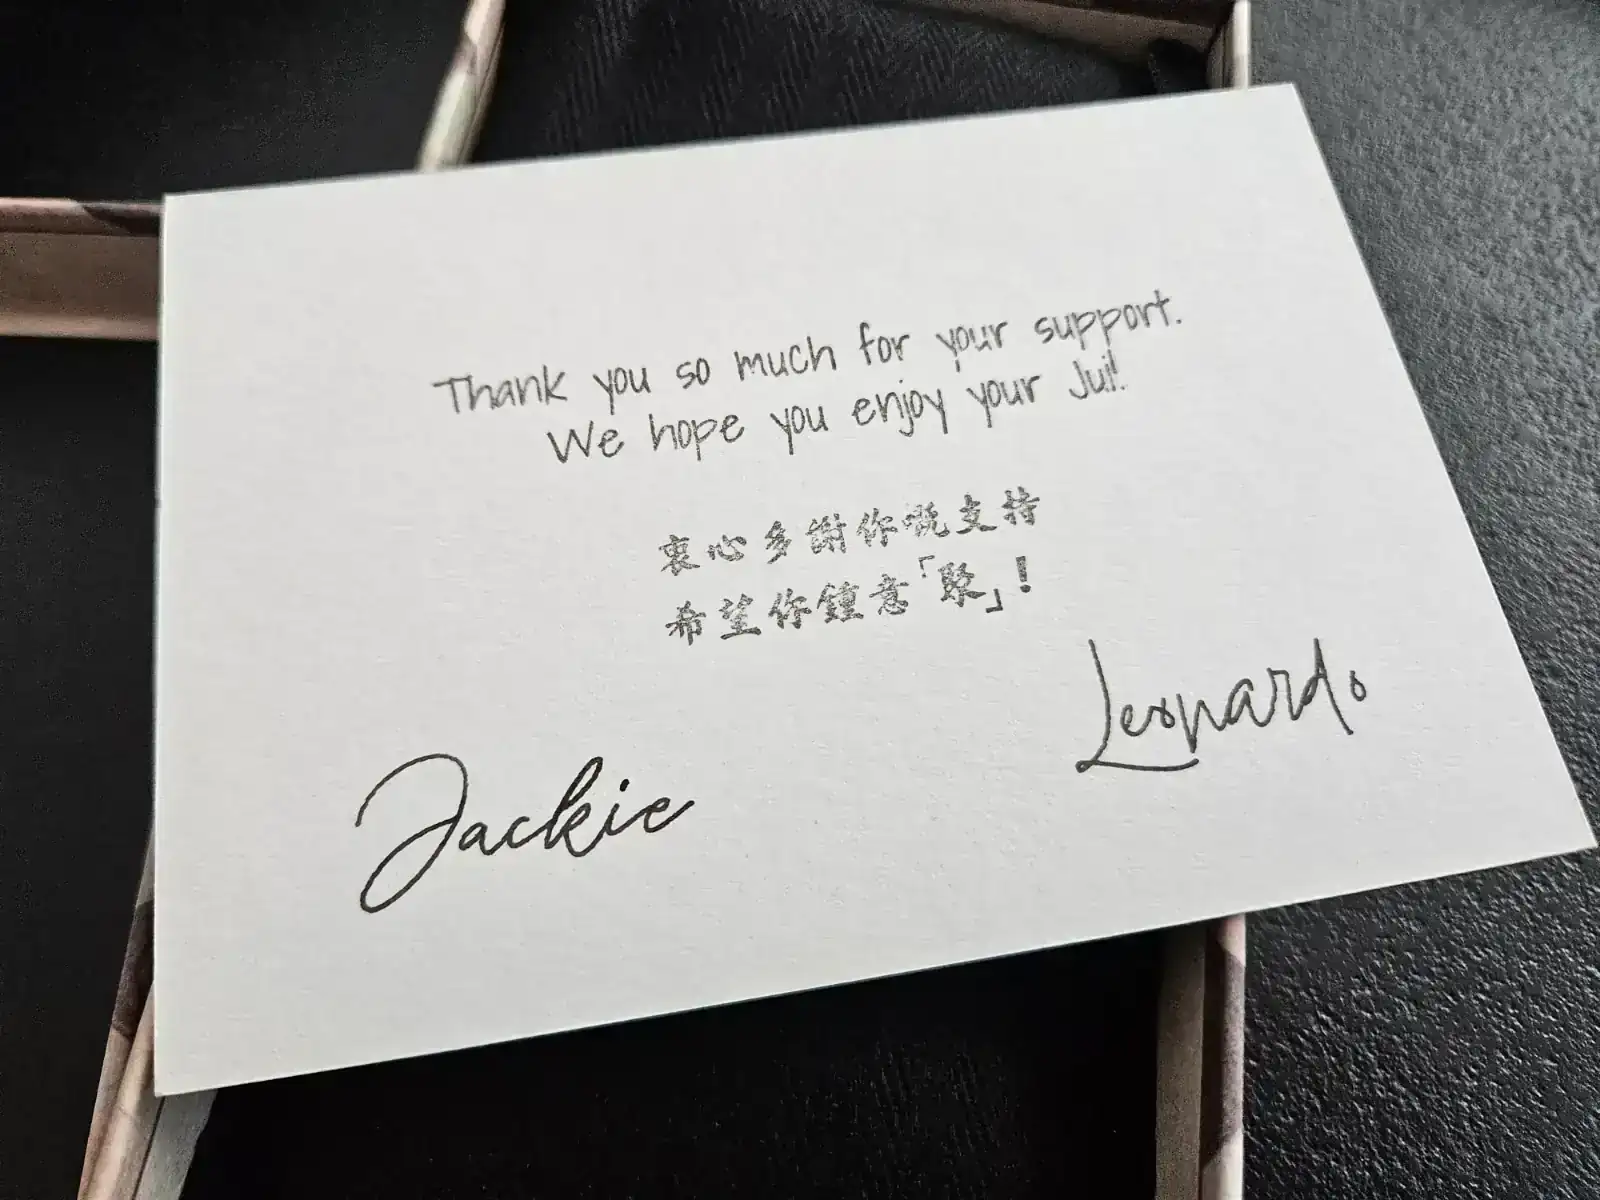 Thank you so much for your support.
We hope you enjoy your Jui!
衷心多謝你嘅支持
希望你鍾意「聚」！
Leonardo
Jackie